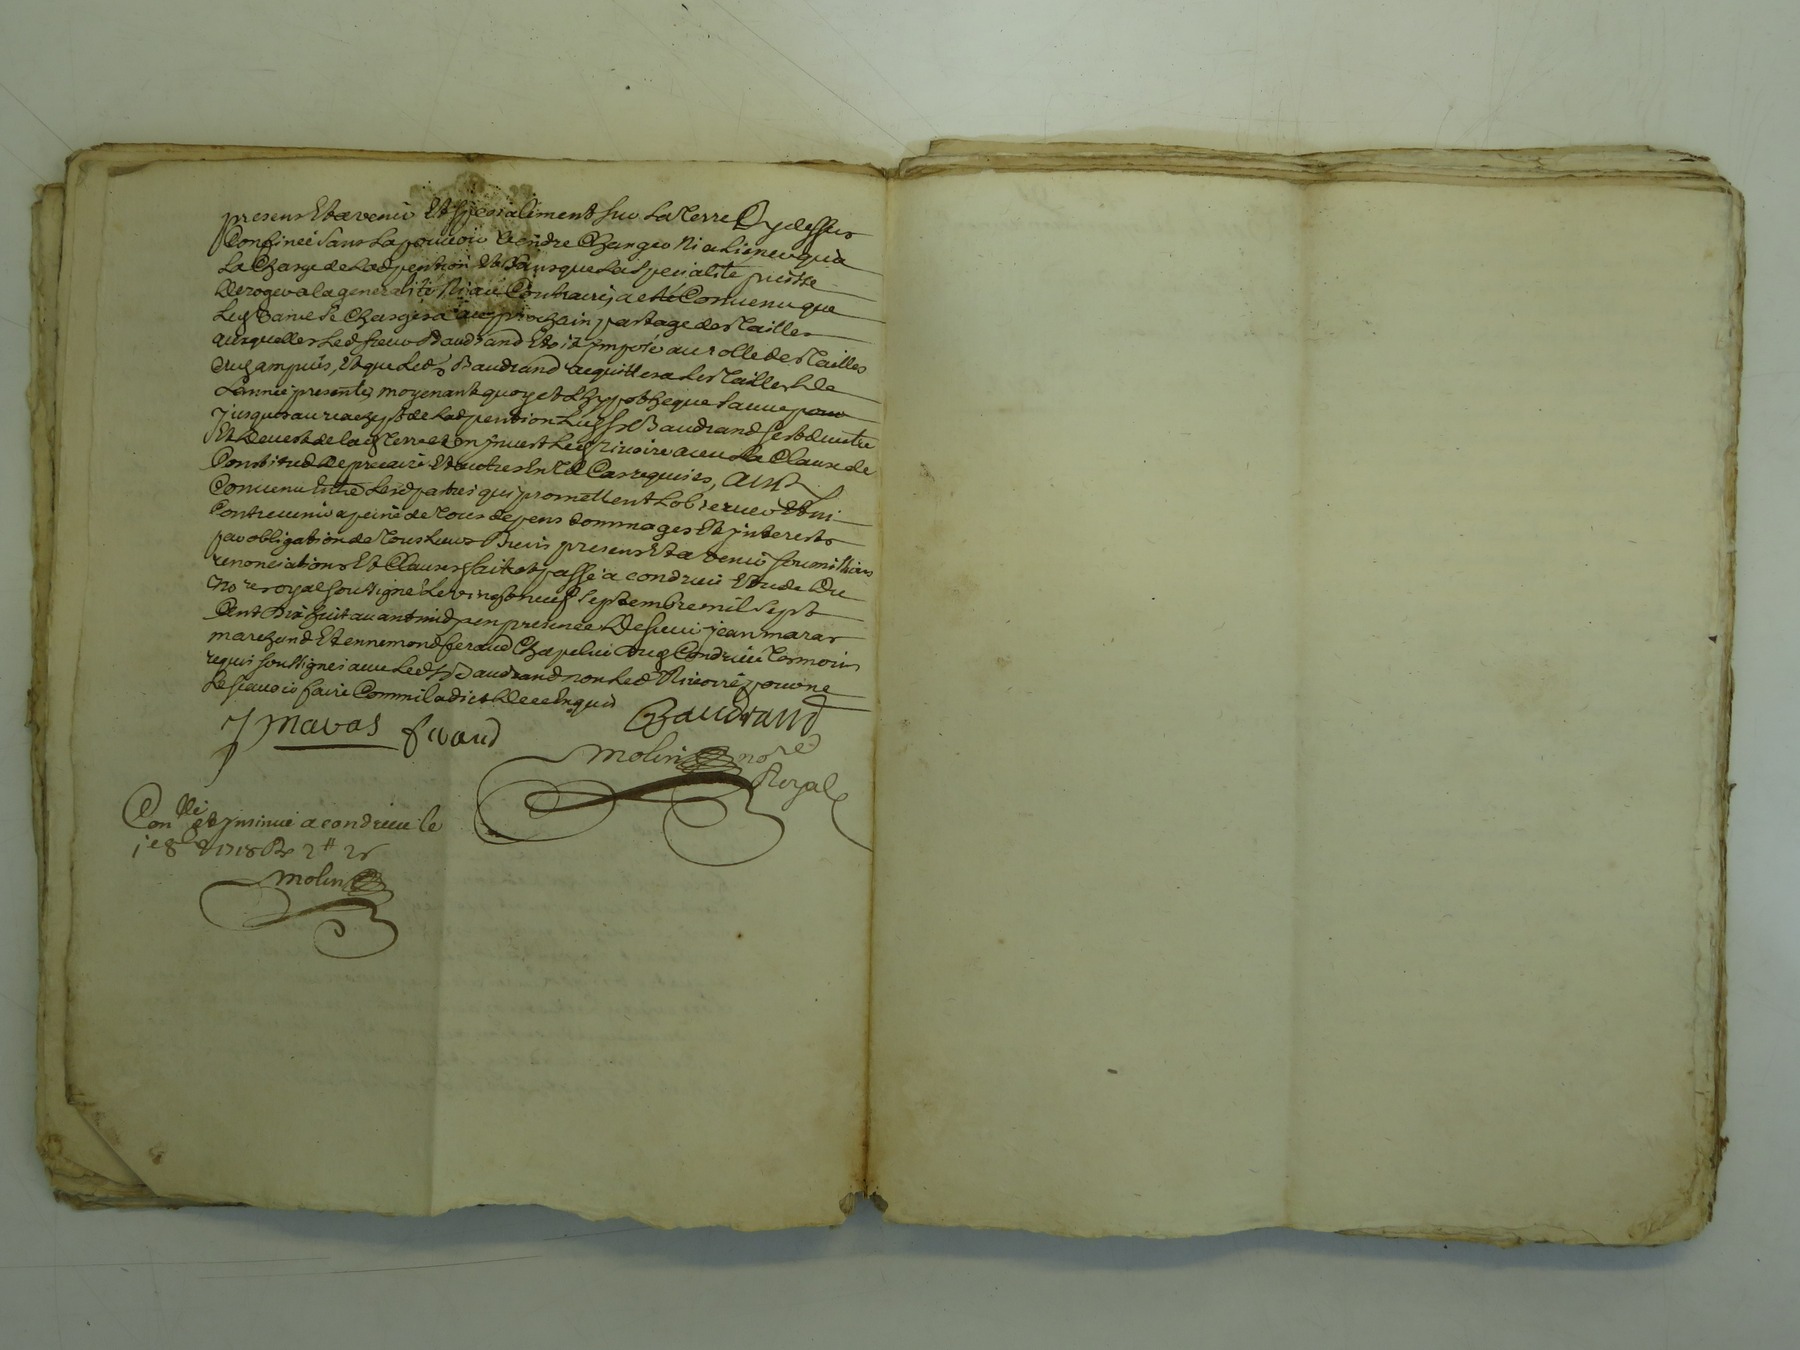 presens Et a venir Et specialement sur La Terre Cy dessus
Confineé Sans La pouvoir Vendre Changer Ni aliener qu'a
La Charge de Lad pention Et Sans que La Specialité puisse
Deroger a la generalité Ni au Contraire, a eté Convenu que
Led Se Chargera au prochain partage des Tailles
ausquelles Led sieur Baudrand Est imposé au rolle des Tailles
d'ampuis, Et que Led Sr Baudrand acquittera Les Tailles de
L'année presente, moyenant quoy et L'hypotheque Sauve
Jusques au rachept de Lad pention Led Sr Baudrand
Et Devest de lad Terre et en Invest Led rivoire avec La Clause de
Constitut De precaire Et autres En Tel Cas requises, Ainsy
Convenu Entre Lesd parties qui promettent L'observer Et ny
Contrevenir a peine de Tous depens dommages Et interests
par obligation de Tous Leurs Biens presens Et a venir soumissions
renonciations Et Clauses, fait et passé a condrieu Etude Du
No re royal soussigné Le vingt neuf Septembre mil Sept
Cent Dix huit avant midy en presence De jean maras
marchand Et ennemond feraud Chapelier dud Condrieu Temoins
requis soussignes avec Led Sr Baudrand non Led Rivoire pour ne
Le scavoir faire Comm'il a dit De ce Enquis
J maras feraud Baudrand
Molin no re
Royal
Con llé et insinué a condrieu le
1e 8bre 1718 R 2# 2s
Molin